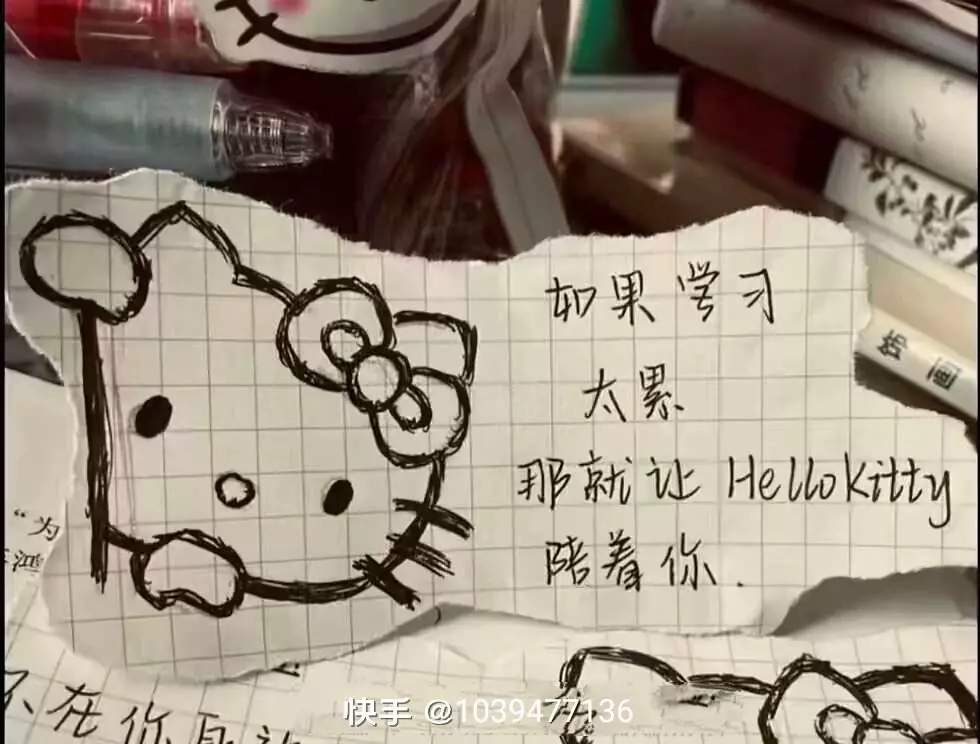 如果学习
太累
那就让HelloKitty
陪着你.
饰 画
“为
鸿
不在你身边
快手 @1039477136